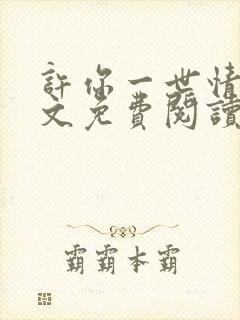 許你一世情
文免費閱讀
霸霸本霸